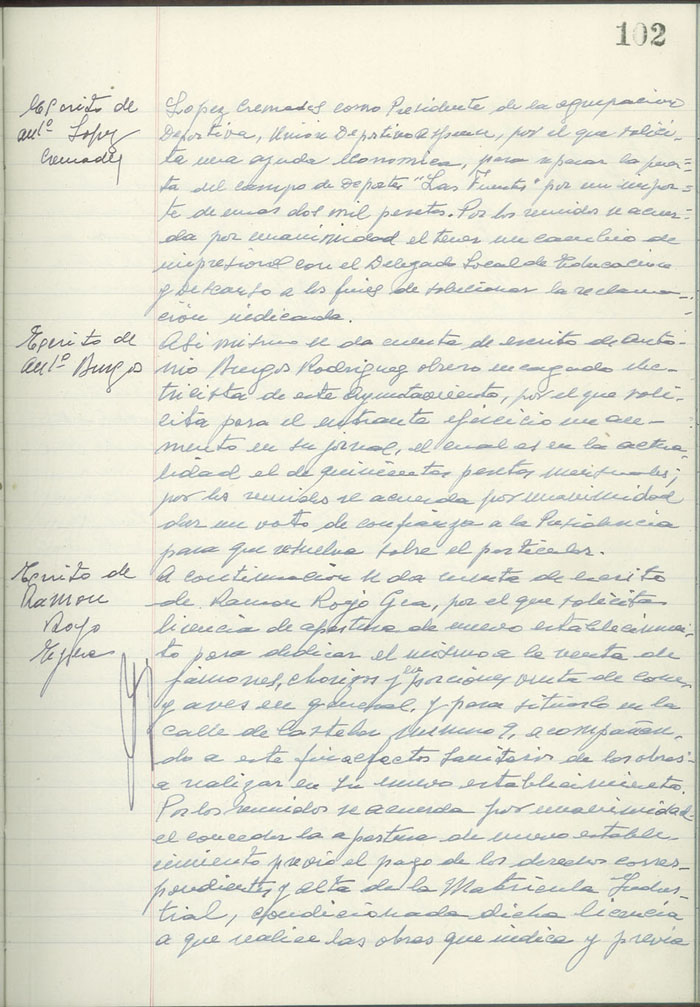 102
Escrito de
Antº Lopez
Cremades
Lopez Cremades como Presidente de la agrupacion
Deportiva, Union Deportiva Aspense, por el que solici-
ta una ayuda economica, para reparar la puer-
ta del campo de deportes "Las Fuentes" por un impor-
te de unas dos mil pesetas. Por los reunidos se acuer-
da por unanimidad el tener un cambio de
impresiones con el Delegado Local de Educacion
y Descanso a los fines de solucionar la reclama-
ción indicada.
Escrito de
Antº Burgos
Asi mismo se da cuenta de escrito de Anto-
nio Burgos Rodriguez obrero encargado elec-
tricista de este Ayuntamiento, por el que soli-
cita para el entrante ejercicio un au-
mento en su jornal, el cual es en la actua-
lidad el de quinientas pesetas mensuales;
por los reunidos se acuerda por unanimidad
dar un voto de confianza a la Presidencia
para que resuelva sobre el particular.
Escrito de
Ramon
Royo
A continuacion se da cuenta de escrito
de Ramon Royo Gea, por el que solicita
licencia de apertura de nuevo establecimien-
to para dedicar el mismo a la venta de
jamones, chorizos y en porciones venta de carne
y aves en general, y para situarlo en la
calle de Castelar numero 9, acompañan-
do a este fin efectos sanitarios de las obras
a realizar en su nuevo establecimiento.
Por los reunidos se acuerda por unanimidad
el conceder la apertura de nuevo estable-
cimiento previo el pago de los derechos corres-
pondientes y alta de la Matricula Indus-
trial, condicionada dicha licencia
a que realice las obras que indica y previa